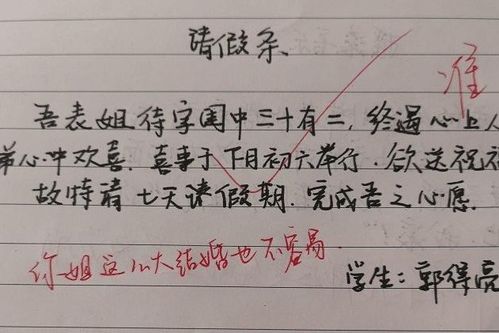 请假条
准
吾表姐待字闺中三十有二,终遇心上人
弟心中欢喜.喜事于下月初六举行.欲送祝福
故特请七天请假期.完成吾之心愿.
你姐这么大结婚也不容易.
学生:郭得亮